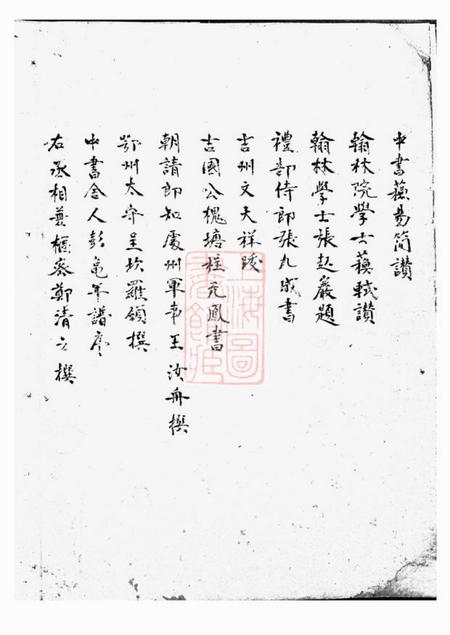 中書蘇易簡讃
翰林院學士蘇軾讃
翰林學士張起巖題
禮部侍郎張九成書
吉州文天祥跋
吉國公槐塘程元鳳書
朝請郎知處州軍事王汝舟撰
鄂州太守呈坎羅頌撰
中書舍人彭龜年譜序
右丞相兼樞密鄭清之撰